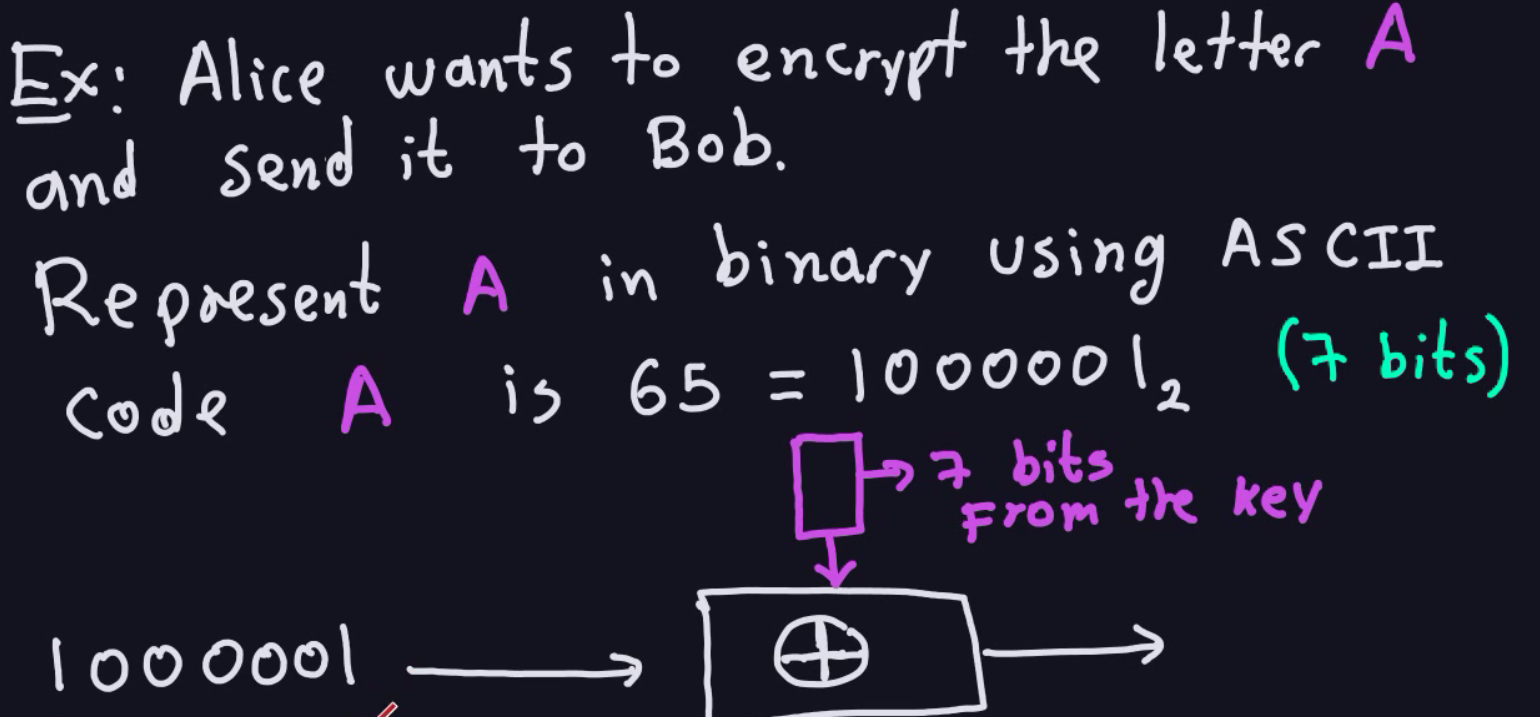 Ex: Alice wants to encrypt the letter A
and send it to Bob.
Represent A in binary using ASCII
code A is 65 = 1000001₂ (7 bits)
7 bits
From the key
1000001